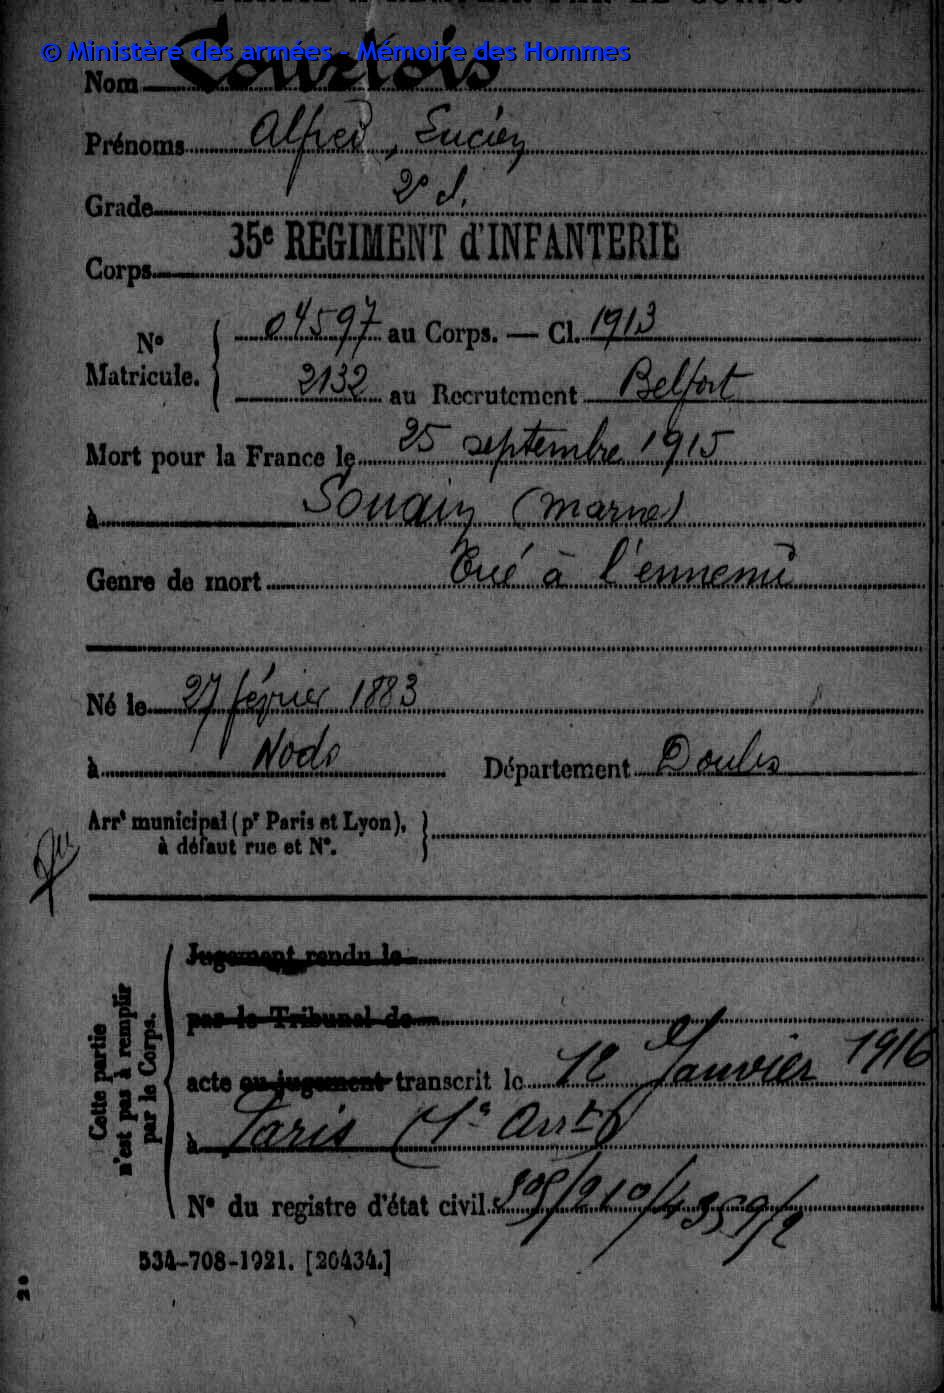 PARTIE À REMPLIR PAR LE CORPS.
© Ministère des armées - Mémoire des Hommes
Nom Courtois
Prénoms Alfred, Lucien
Grade 2e cl.
35e REGIMENT d'INFANTERIE
Corps
N° Matricule. 04597 au Corps. — Cl. 1913
2132 au Recrutement Belfort
Mort pour la France le 25 septembre 1915
à Souain (Marne)
Genre de mort Tué à l'ennemi
Né le 27 février 1883
à Nods Département Doubs
Arrt municipal (pr Paris et Lyon),
à défaut rue et N°.
Cette partie
n'est pas à remplir
par le Corps.
Jugement rendu le
par le Tribunal de
acte ou jugement transcrit le 12 Janvier 1916
à Paris (1er Arrt)
N° du registre d'état civil
534-708-1921. [26434.]